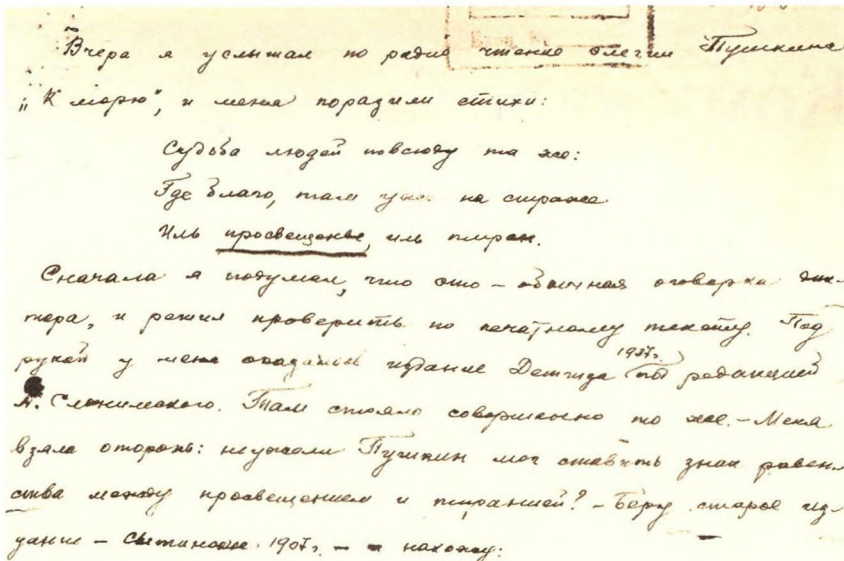 Вчера я услышал по радио чтение элегии Пушкина
„К морю", и меня поразили стихи:
Судьба людей повсюду та же:
Где благо, там уже на страже
Иль просвещенье, иль тиран.
Сначала я подумал, что это – обычная оговорка дик-
тора, и решил проверить по печатному тексту. Под
рукой у меня оказалось издание Детгиза 1937г. под редакцией
А. Слонимского. Там стояло совершенно то же. – Меня
взяла оторопь: неужели Пушкин мог ставить знак равен-
ства между просвещением и тиранией? – Беру старое из-
дание – Сытинское 1907г. – и нахожу: